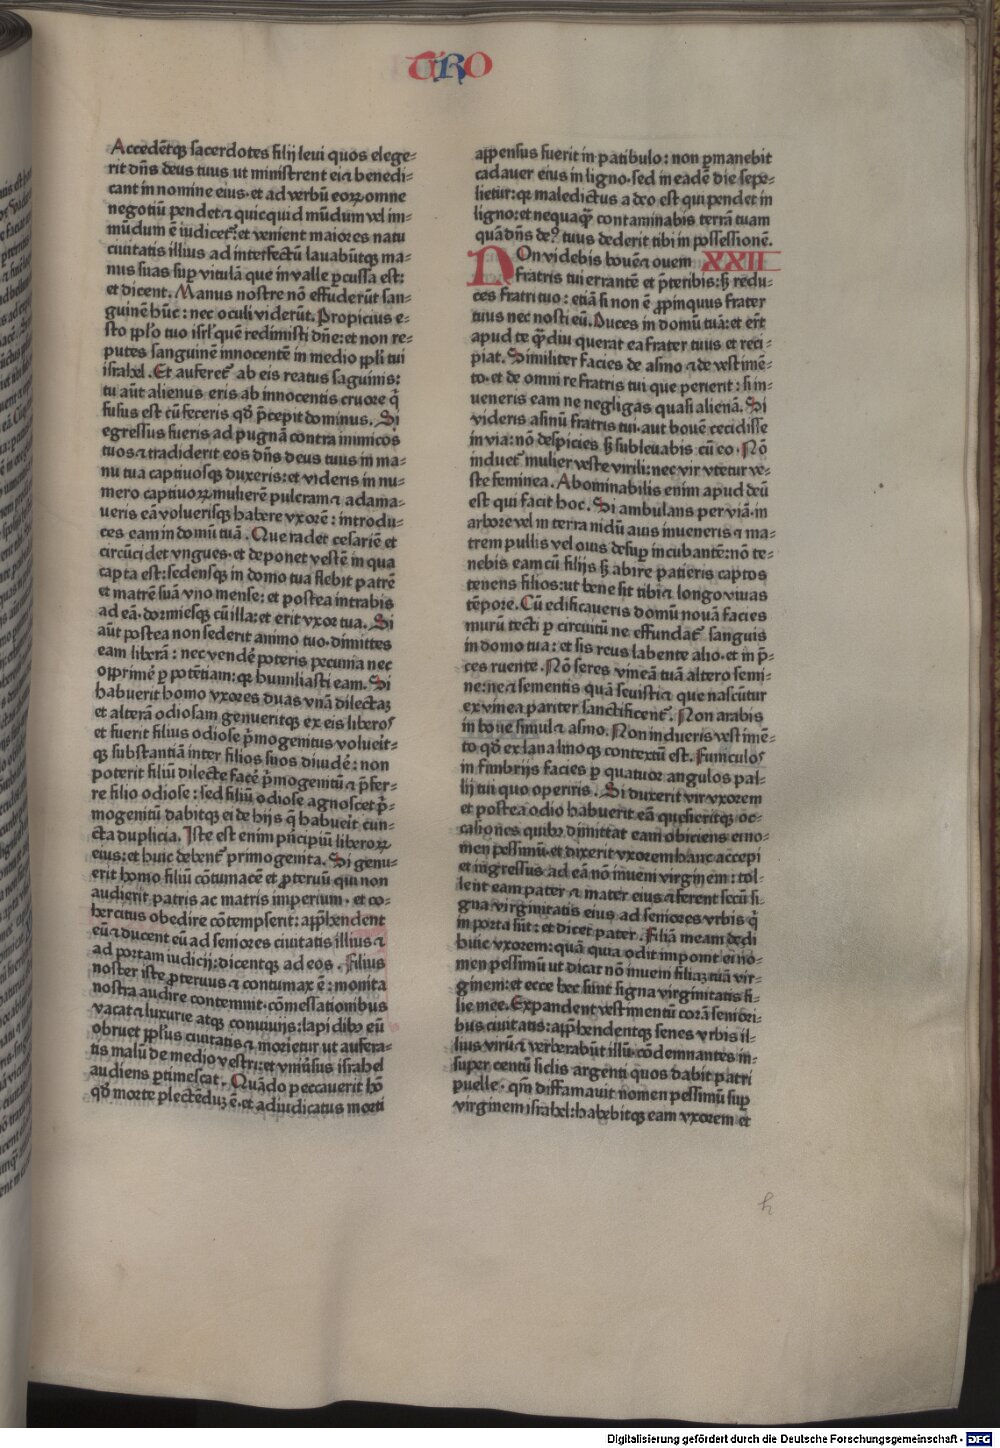 TRO
Accedētqȝ sacerdotes filij leui quos elege⸗
rit dn̄s deus tuus ut ministrent ei ⁊ benedi⸗
cant in nomine eius · et ad verbū eoꝝ omne
negotiū pendet ⁊ quicquid mūdum vel im⸗
mūdum ē iudicet᷑: et venient maiores natu
ciuitatis illius ad interfectū lauabūtqȝ ma⸗
nus suas suꝑ vitulā que in valle ꝑcussa est:
et dicent. Manus nostre nō effuderūt san⸗
guinē hūc : nec oculi viderūt. Propicius e⸗
sto pplo tuo isrl̄ quē redimisti dn̄e: et non re⸗
putes sanguinē innocentē in medio ppl̄i tui
israhel . Et auferet᷑ ab eis reatus sāguinis:
tu aūt alienus eris ab innocentis cruore q̄
fusus est cū feceris qd̄ p̄cepit dominus . Si
egressus fueris ad pugnā contra inimicos
tuos ⁊ tradiderit eos dn̄s deus tuus in ma⸗
nu tua captiuosqȝ duxeris: et videris in nu⸗
mero captiuoꝝ mulierē pulcram ⁊ adama⸗
ueris eā voluerisqȝ habere vxorē : introdu⸗
ces eam in domū tuā . Que radet cesariē et
circūcidet vngues · et deponet vestē in qua
capta est: sedensqȝ in domo tua flebit patrē
et matrē suā vno mense: et postea intrabis
ad eā · dormiesqȝ cū illa: et erit vxor tua . Si
aūt postea non sederit animo tuo · dimittes
eam liberā : nec vendē poteris pecunia nec
opprimē ꝑ potētiam: qȝ humiliasti eam. Si
habuerit homo vxores duas vnā dilectaȝ
et alterā odiosam genueritqȝ ex eis liberos
et fuerit filius odiose p̄mogenitus volueit⸗
qȝ substantiā inter filios suos diuidē: non
poterit filiū dilecte facē p̄mogenitū ⁊ p̄fer⸗
re filio odiose : sed filiū odiose agnoscet p̄⸗
mogenitū dabitqȝ ei de hijs q̄ habueit cun⸗
cta duplicia. Iste est enim pn̄cipiū liberoꝝ
eius: et huic debent᷑ primogenita . Si genu⸗
erit homo filiū cōtumacē et ꝓteruū qui non
audierit patris ac matris imperium · et co⸗
hercitus obedire cōtempserit: app̄hendent
eū ⁊ ducent eū ad seniores ciuitatis illius ⁊
ad portam iudicij: dicentqȝ ad eos . Filius
noster iste ꝓteruus ⁊ contumax ē : monita
nostra audire contemnit · cōmessationibus
vacat ⁊ luxurie atqȝ conuiuijs: lapidibꝰ eū
obruet pplūs ciuitatis ⁊ morietur ut aufera⸗
tis malū de medio vestri: et vniūsus israhel
audiens ꝑtimescat . Quādo peccauerit hō
qd̄ morte plectēduȝ ē · et adiudicatus morti
appensus fuerit in patibulo : non ꝑmanebit
cadauer eius in ligno · sed in eadē die sepe⸗
lietur: qȝ maledictus a deo est qui pendet in
ligno: et nequaqȝ contaminabis terrā tuam
quā dn̄s deꝰ tuus dederit tibi in possessionē.
NOn videbis bouē ⁊ ouem XXII
fratris tui errantē et p̄teribis: sȝ redu⸗
ces fratri tuo : etiā si non ē ꝓpinquus frater
tuus nec nosti eū. Duces in domū tuā: et erūt
apud te q̄diu querat ea frater tuus et reci⸗
piat. Similiter facies de asino ⁊ de vestimē⸗
to · et de omni re fratris tui que perierit : si in⸗
ueneris eam ne negligas quasi alienā. Si
videris asinū fratris tui · aut bouē cecidisse
in via: nō despicies sȝ subleuabis cū eo · Nō
induet᷑ mulier veste virili: nec vir vtetur ve⸗
ste feminea. Abominabilis enim apud deū
est qui facit hoc. Si ambulans per viā · in
arbore vel in terra nidū auis inueneris ⁊ ma⸗
trem pullis vel ouis desuꝑ incubantē: nō te⸗
nebis eam cū filijs sȝ abire patieris captos
tenens filios: ut bene sit tibi ⁊ longo viuas
tēpore. Cū edificaueris domū nouā facies
murū tecti ꝑ circuitū ne effundat᷑ sanguis
in domo tua: et sis reus labente alio · et in p̄⸗
ces ruente. Nō seres vineā tuā altero semi⸗
ne: ne ⁊ sementis quā seuisti ⁊ que nascūtur
ex vinea pariter sanctificent᷑. Non arabis
in boue simul ⁊ asino. Non indueris vestimē⸗
to qd̄ ex lana linoqȝ contextū est. Funiculos
in fimbrijs facies ꝑ quatuor angulos pal⸗
lij tui quo operiris . Si duxerit vir vxorem
et postea odio habuerit eā quesieritqȝ oc⸗
casiones quibꝰ dimittat eam obiciens ei no⸗
men pessimū · et dixerit vxorem hanc accepi
et ingressus ad eā nō inueni virginem : tol⸗
lent eam pater ⁊ mater eius ⁊ ferent secū si⸗
gna virginitatis eius ad seniores vrbis q̄
in porta sūt: et dicet pater . Filiā meam dedi
huic vxorem: quā quia odit imponit ei no⸗
men pessimū ut dicat nō inueni filiaȝ tuā vir⸗
ginem: et ecce hec sūnt signa virginitatis fi⸗
lie mee. Expandent vestimentū corā seniori⸗
bus ciuitatis: app̄hendentqȝ senes vrbis il⸗
lius virū ⁊ verberabūt illū · cōdemnantes in⸗
super centū siclis argenti quos dabit patri
puelle · qm̄ diffamauit nomen pessimū suꝑ
virginem israhel: habebitqȝ eam vxorem et
h
Digitalisierung gefördert durch die Deutsche Forschungsgemeinschaft - DFG